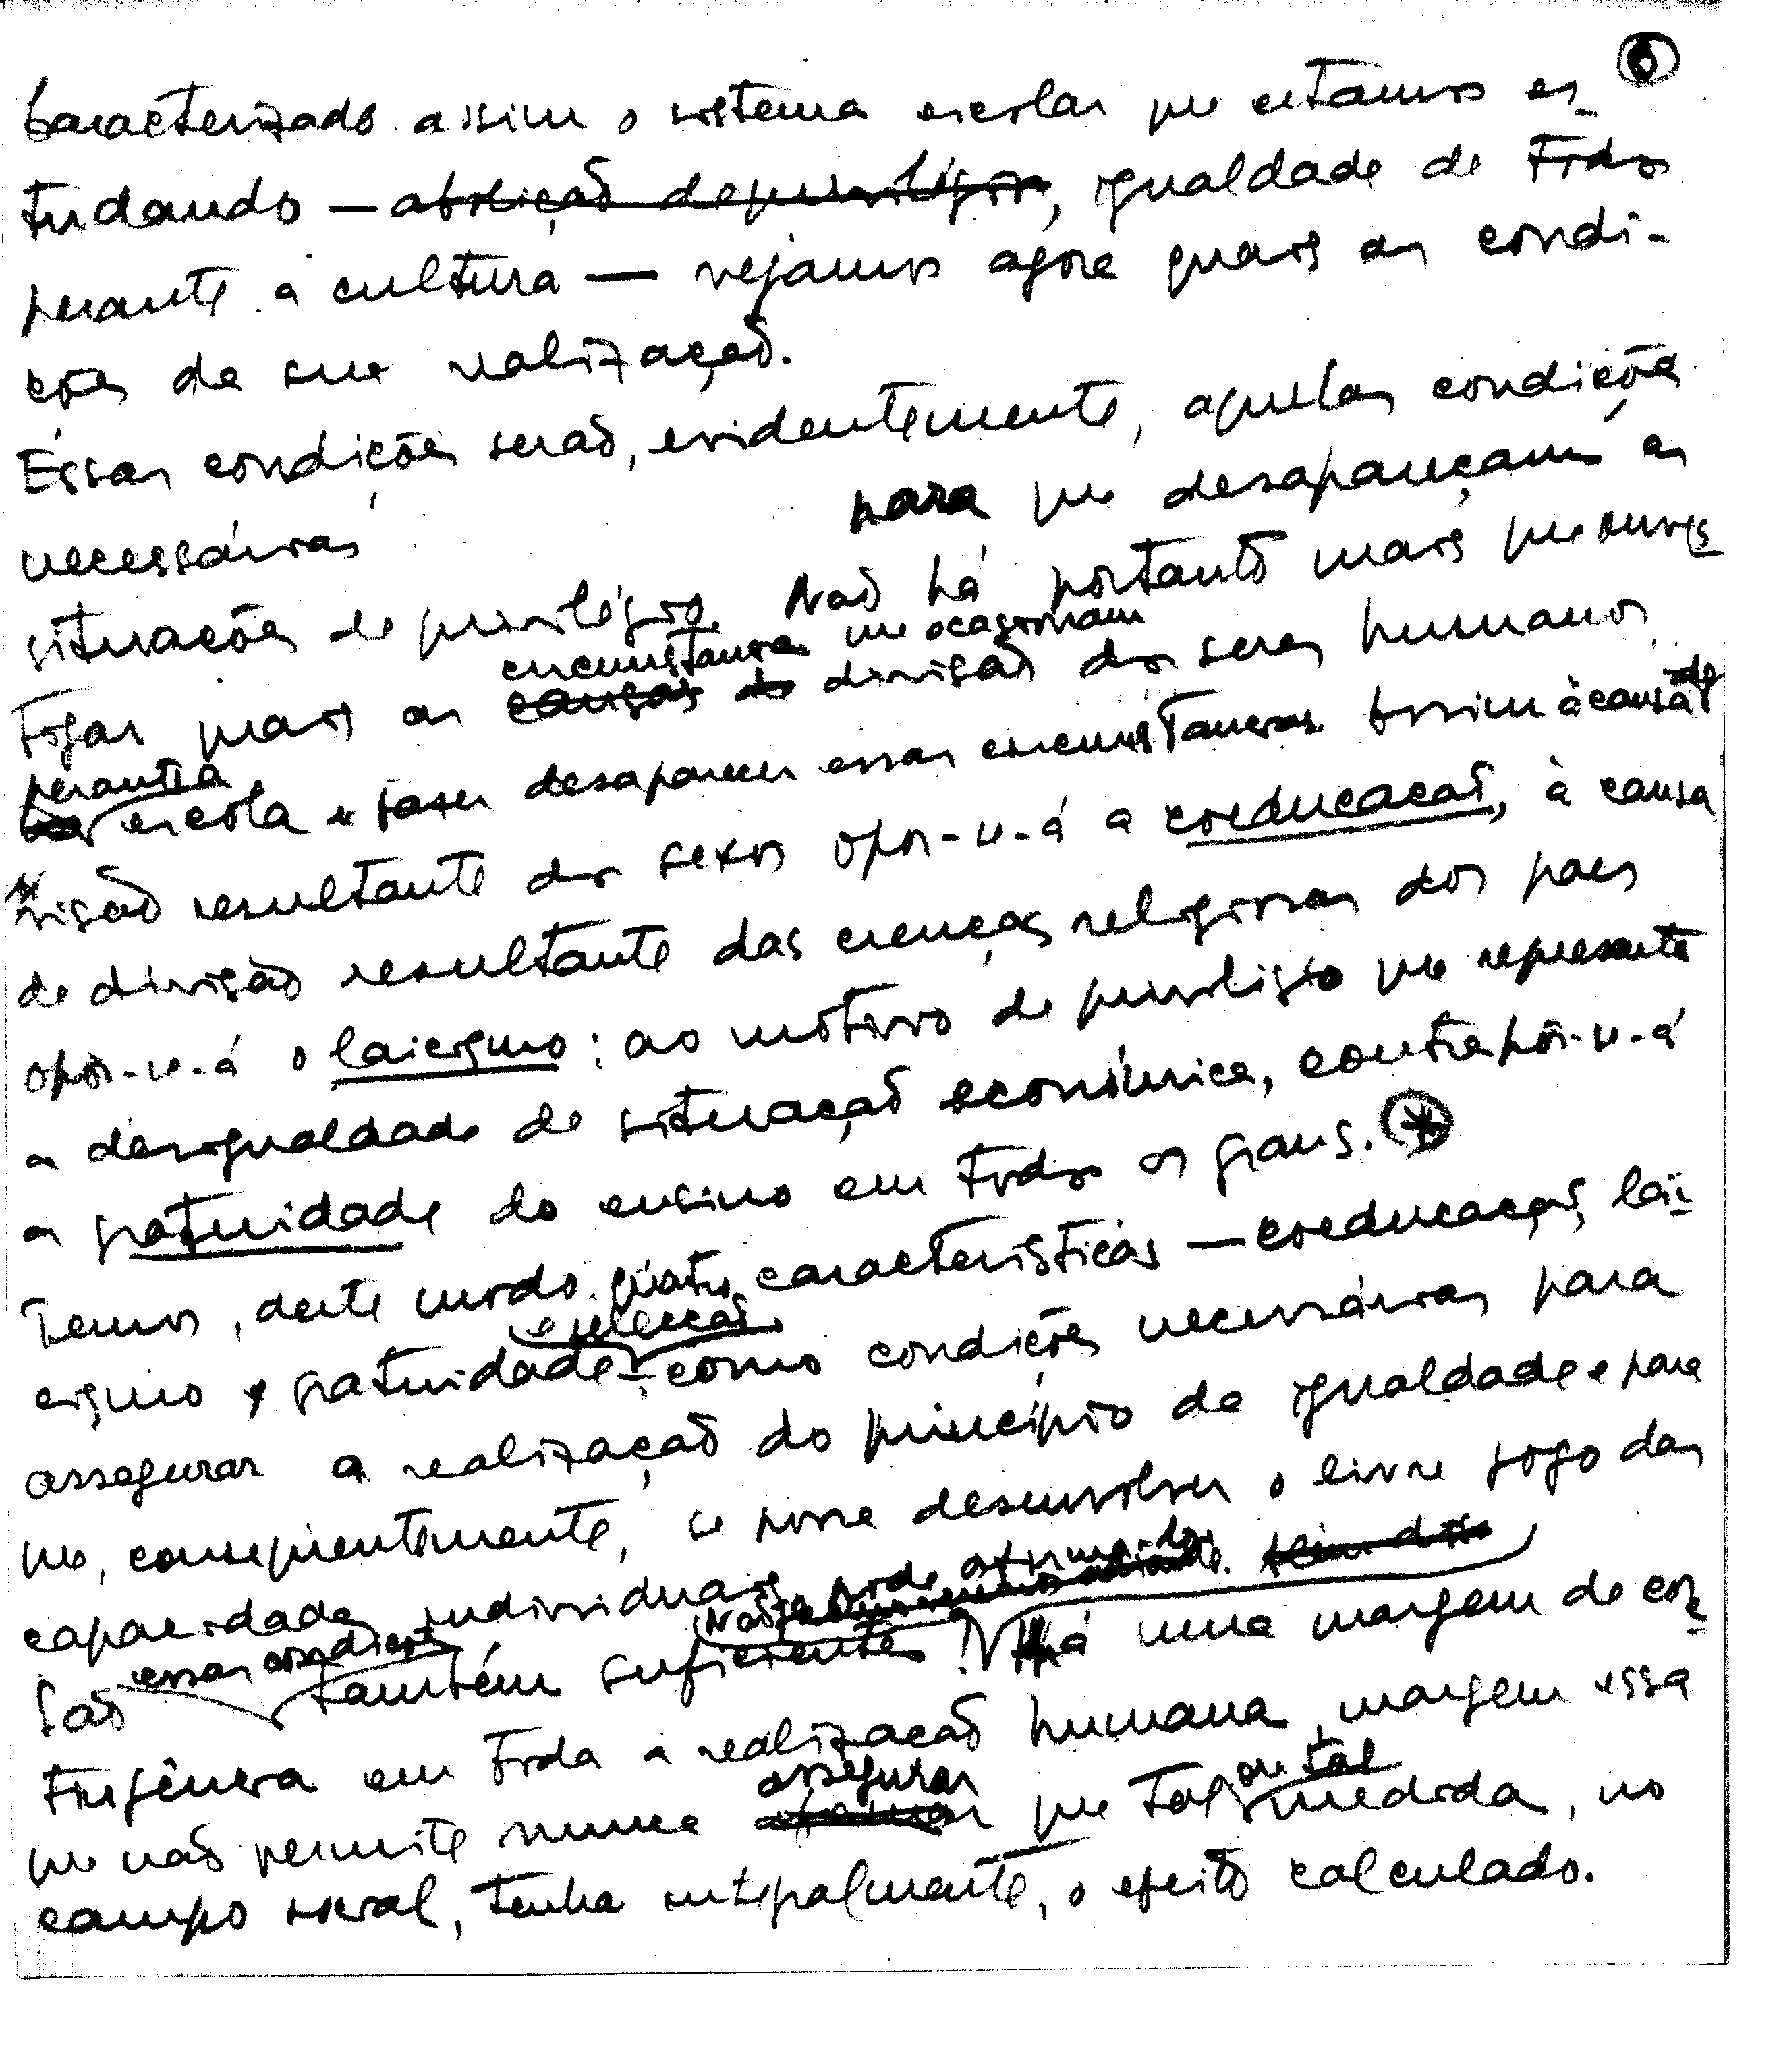 6
Caracterizado assim o sistema escolar que estamos es-
tudando — abolição de privilégios, igualdade de todos
perante a cultura — vejamos agora quais as condi-
ções da sua realização.
Essas condições serão, evidentemente, aquelas condições
necessárias para que desapareçam as
situações de privilégio. Não há portanto mais que inves-
circunstancias que ocasionam
tigar quais as causas de divisão dos seres humanos
perante a
escola e fazer desaparecer essas circunstancias. Assim à causa de
visão resultante dos sexos opor-se-á a coeducação, à causa
de divisão resultante das crenças religiosas dos paes
opor-se-á o laicismo; ao motivo de privilégio que represente
a desigualdade de situação económica, contrapôr-se-á
a gratuidade do ensino em todos os graus.
Temos, deste modo, quatro características — coeducação, laï-
e selecção
cismo e gratuidade — como condições necessárias para
assegurar a realização do princípio da igualdade e para
que, consequentemente, se possa desenvolver o livre jogo das
capacidades individuais.
Não se pode afirmá-lo.
essas condições
São também suficientes? Há uma margem de con-
tingência em toda a realização humana, margem essa
assegurar
ou tal
que não permite nunca que tal medida, no
campo social, tenha integralmente, o efeito calculado.